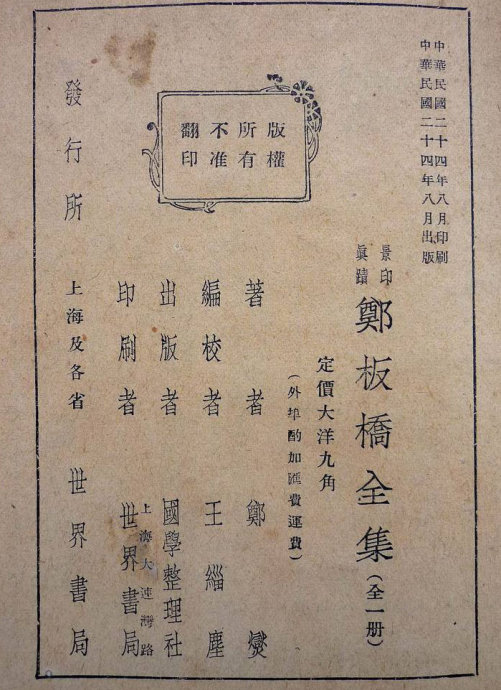 中華民國二十四年八月印刷
中華民國二十四年八月出版
版權
所有
不准
翻印
景印
眞蹟
鄭板橋全集(全一册)
定價大洋九角
(外埠酌加匯費運費)
著者 鄭燮
編校者 王緇塵
出版者 國學整理社
印刷者 上海大連灣路 世界書局
發行所 上海及各省 世界書局